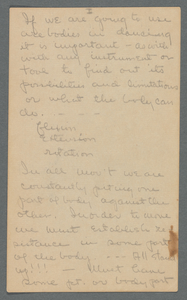 If we are going to use
our bodies in dancing
it is important - as it is
with any instrument or
tool to find out its
possibilities and limitations
or what the body can
do. - - -
flexion
Extension
rotation
In all mov't we are
constantly putting one
part of body against the
other. In order to move
we must establish re-
sistance in some part
of the body. - - -
up!!! - Must have
some pt. or body part